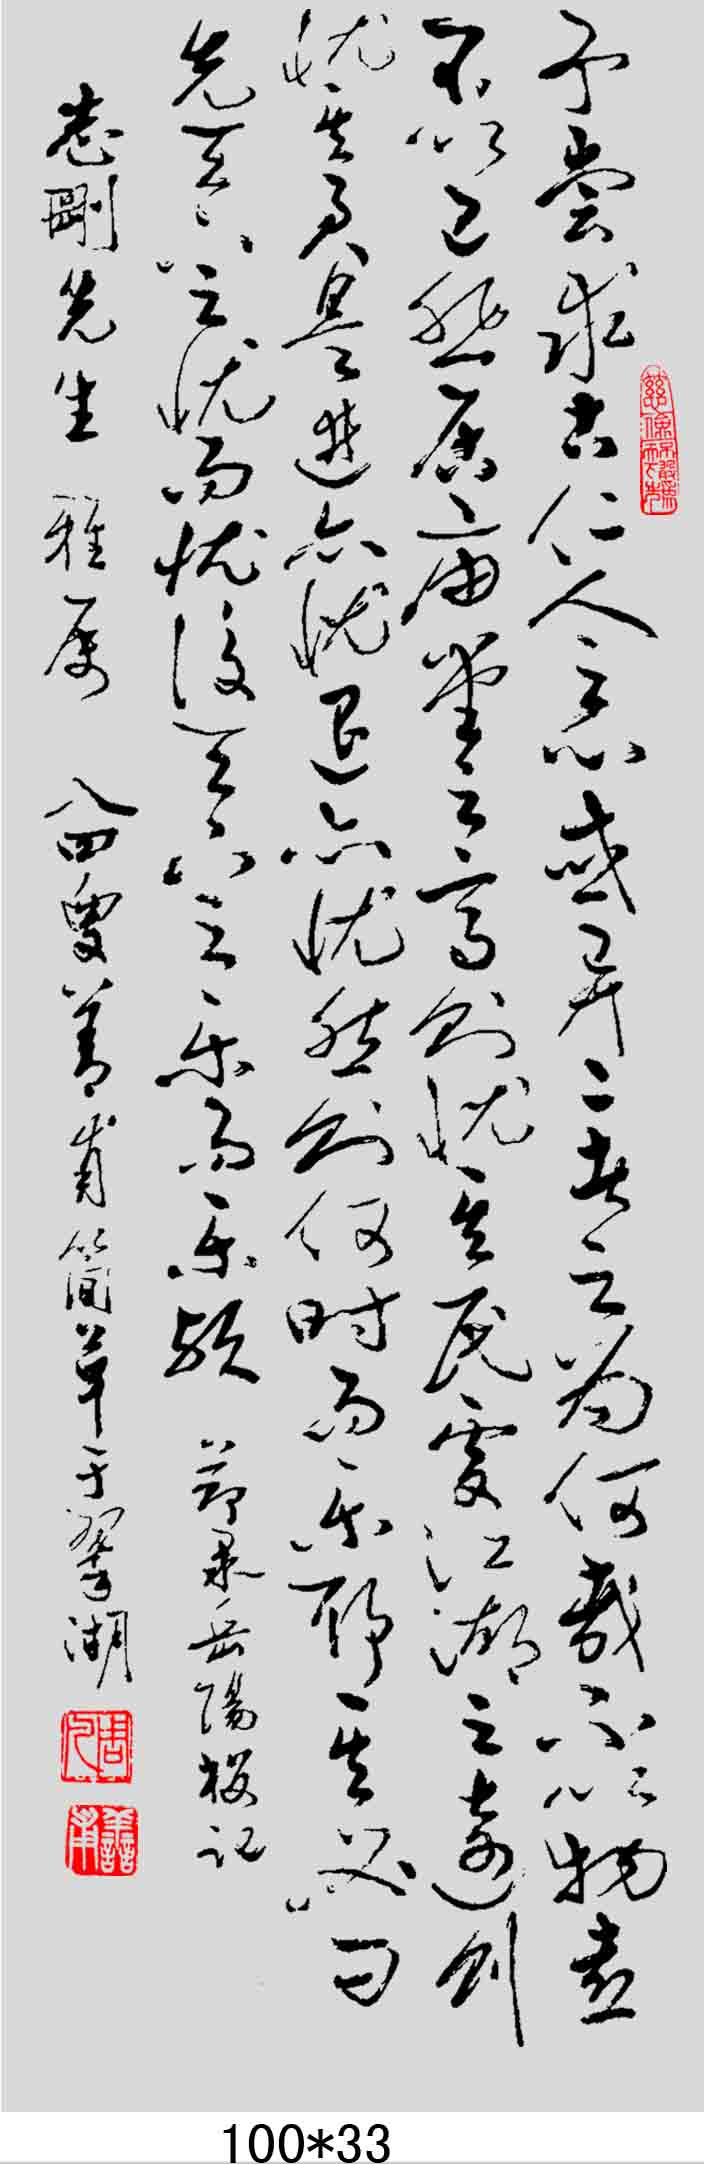 予嘗求古仁人之心或异二者之为何哉不以物喜
不以己悲居庙堂之高则忧其民處江湖之遠则
忧其君是進亦忧退亦忧然则何时而乐耶其必曰
先天下之忧而忧後天下之乐而乐欤 節录岳陽楼记
剛先生 雅属 八四叟善甫简草于翠湖
善甫
100*33